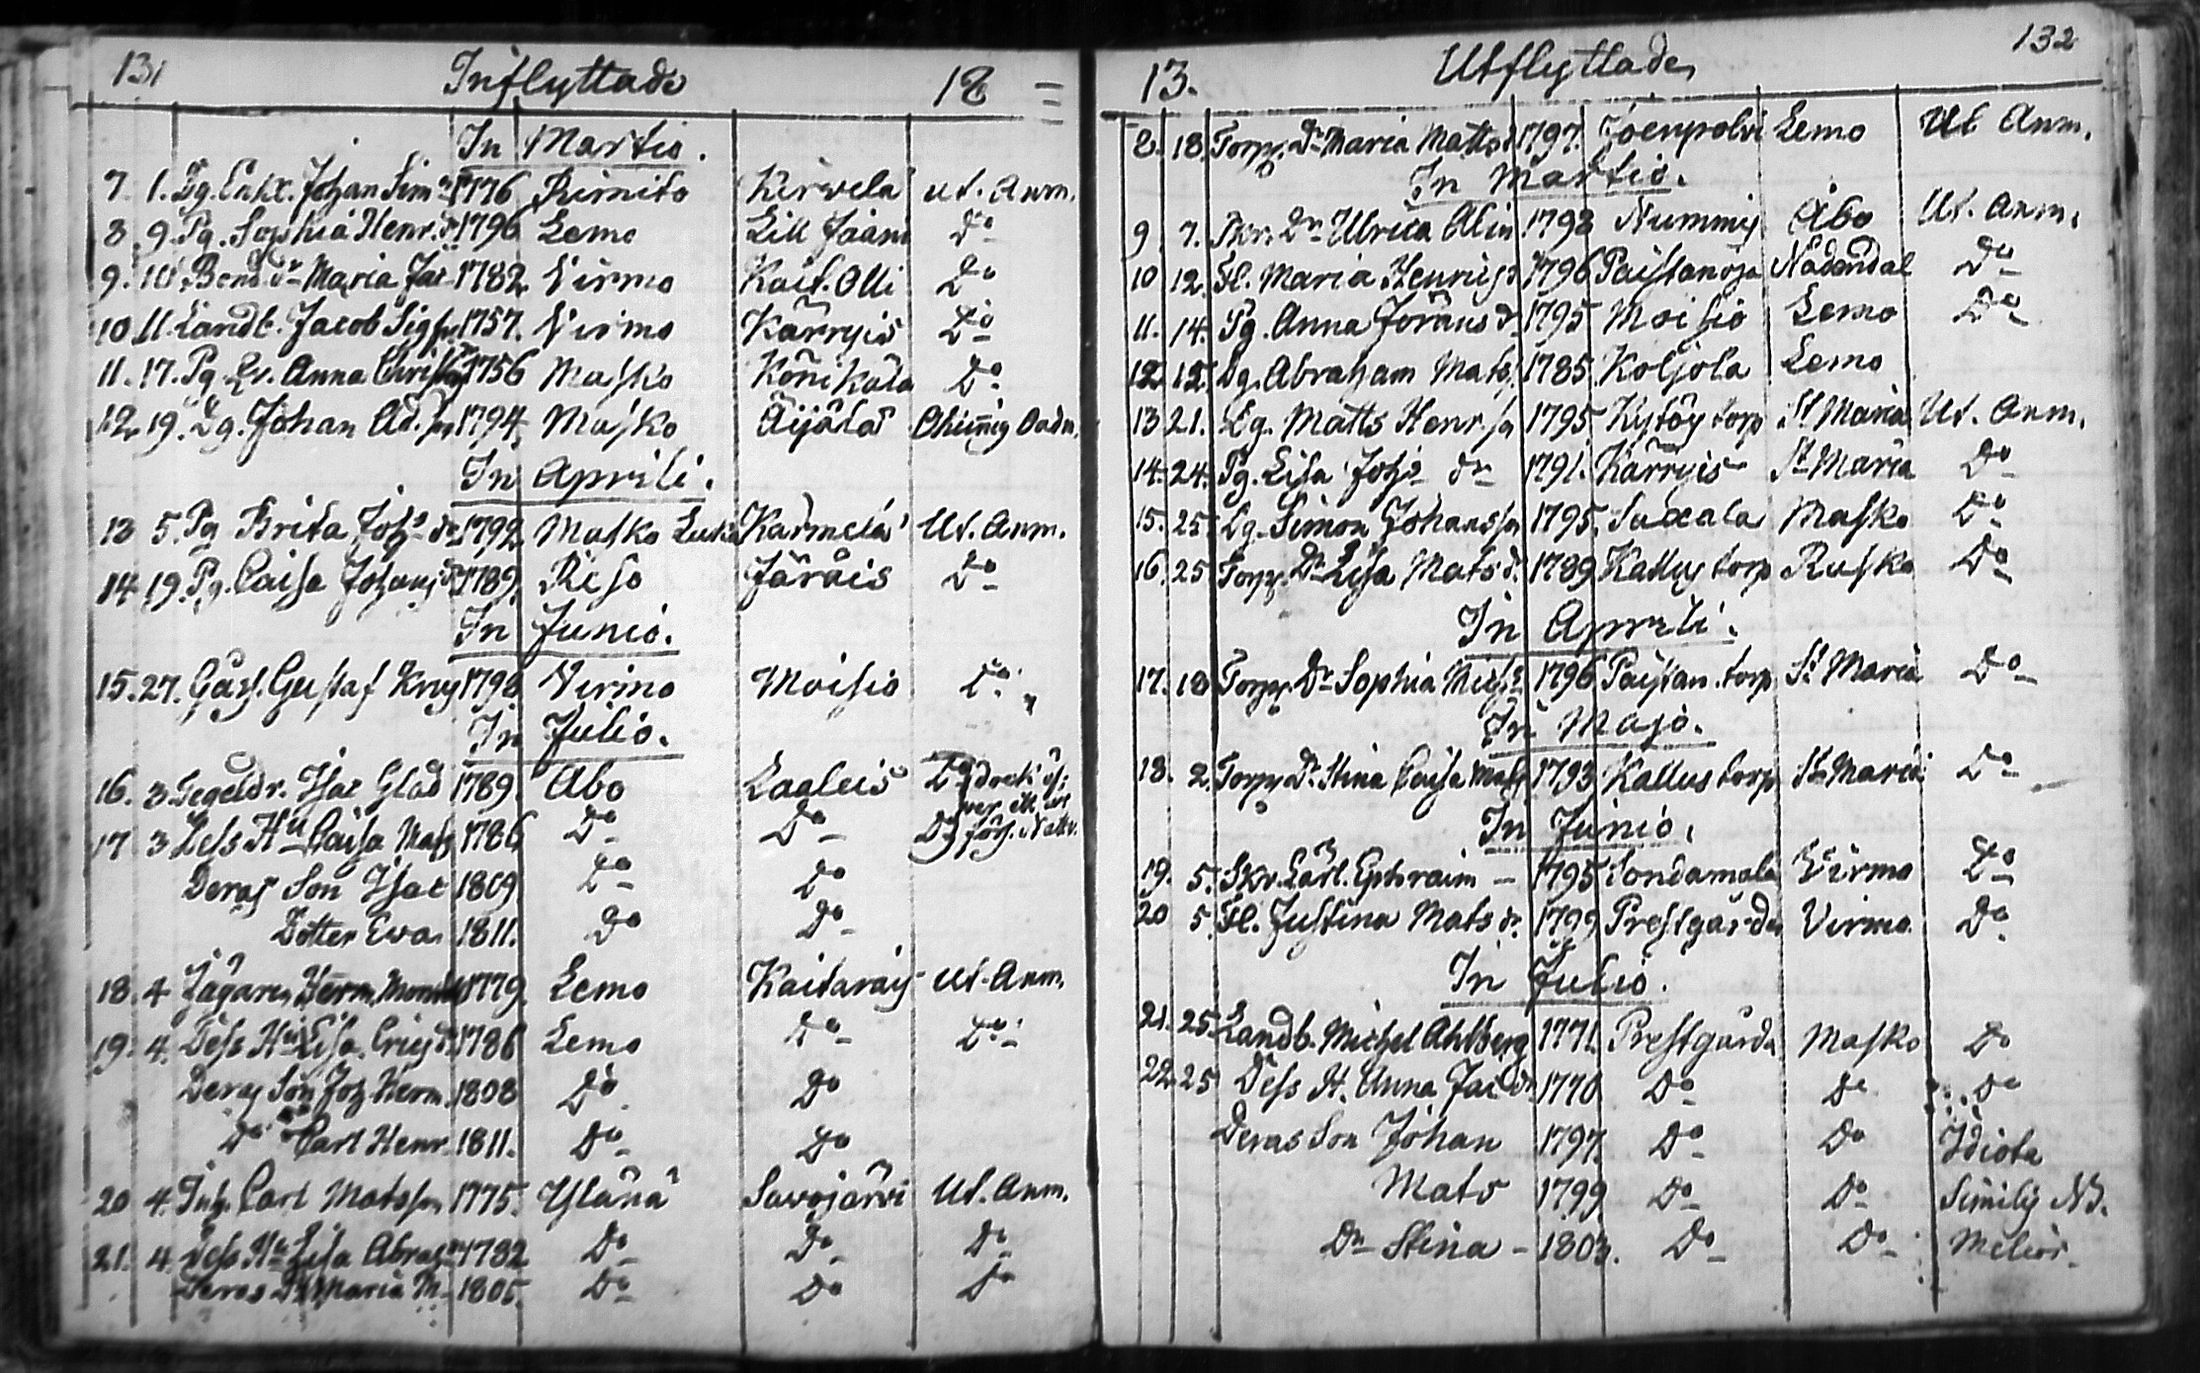 131 Inflyttade 18
In Martio.
7. 1. Dg. Enkl. Johan Sim 1776 Rimito Kirvela ut. Anm.
8. 9. Pg. Sophia Henr. d. 1796 Lemo Lill Jaani Do
9. 10. Bond. dr Maria Jac 1782. Virmo Kait. Olli Do
10. 11. Landb. Jacob Sigfr. 1757. Virmo Kärryis Do
11. 17. Pg. Anna 1756 Masko Könikälä Do
12. 19. Dg. Johan Ad. 1794. Masko Äijälä
In Aprili.
13 5. Pg Brita Johs dr 1792 Masko Karmela Ut. Anm.
14 19. Pg. Caisa Johans d. 1789. Reso Järäis Do
In Junio.
15. 27. Gustaf 1798 Virmo Moisio Do
In Julio.
16. 3 Segeldr. Isac Glad 1789. Abo Laaleis Do dock
17 3 Dess Hu Caisa Mats 1786 Do Do Do
Deras Son Isac 1809 Do Do
Dotter Eva 1811. Do Do
18. 4 Jägaren Herm. 1779. Lemo Kaitarais Ut. Anm.
19. 4. Dess Hu Lisa Erics d. 1786 Lemo Do Do
Deras Son Joh Herm. 1808 Do Do
Do Carl Henr. 1811. Do Do
20 4. Inh. Carl Matsson 1775. Yläna Savojärvi Ut. Anm.
21. 4. Dess Hu Lisa Abra 1782 Do Do Do
Deras Dr Maria M. 1805. Do Do Do
13. Utflyttade 132
8. 18. Torp. Dr Maria Matts d 1797. Joenpolvi Lemo Ut Anm.
In Martio.
9 7. Skr. Dr Ulrica Alin 1798 Nummis Åbo Ut. Anm.
10 12. Fl. Maria Henrics d 1796 Nådendal Do
11. 14. Pg. Anna Jörans d. 1795 Moisio Lemo Do
12. 12. Dg. Abraham Mats. 1785 Koljola Lemo
13 21. Dg. Matts Henr. sn 1795 Kytöy torp St Maria Ut. Anm.
14. 24. Pg. Lisa Johs dr 1791. Kärryis St Maria Do
15. 25. Dg. Simon Johansson 1795. Saxala Masko Do
16. 25 Torp. Dr Lisa Mats d. 1789 Kallus torp Rusko Do
In Aprili.
17. 18 Torp. Dr Sophia Mich. 1796 Paistan. torp St Maria Do
In Majo.
18. 2. Torp Dr Stina Caisa Mats 1793 Kallus torp St Maria Do
In Junio.
19. 5. Skr. Lärl. Ephraim – 1795 Sondamala Virmo Do
20 5. Fl. Justina Mats d. 1799 Prestgården Virmo Do
In Julio.
21. 25. Landb. Michel Ahlberg 1771. Prestgårdn Masko Do
22. 25 Dess H. Anna Jac dr 1770 Do Do Do
Deras Son Johan 1797. Do Do Idiota
Mats 1799 Do Do Similis NB.
Dr Stina – 1803. Do Do Melior